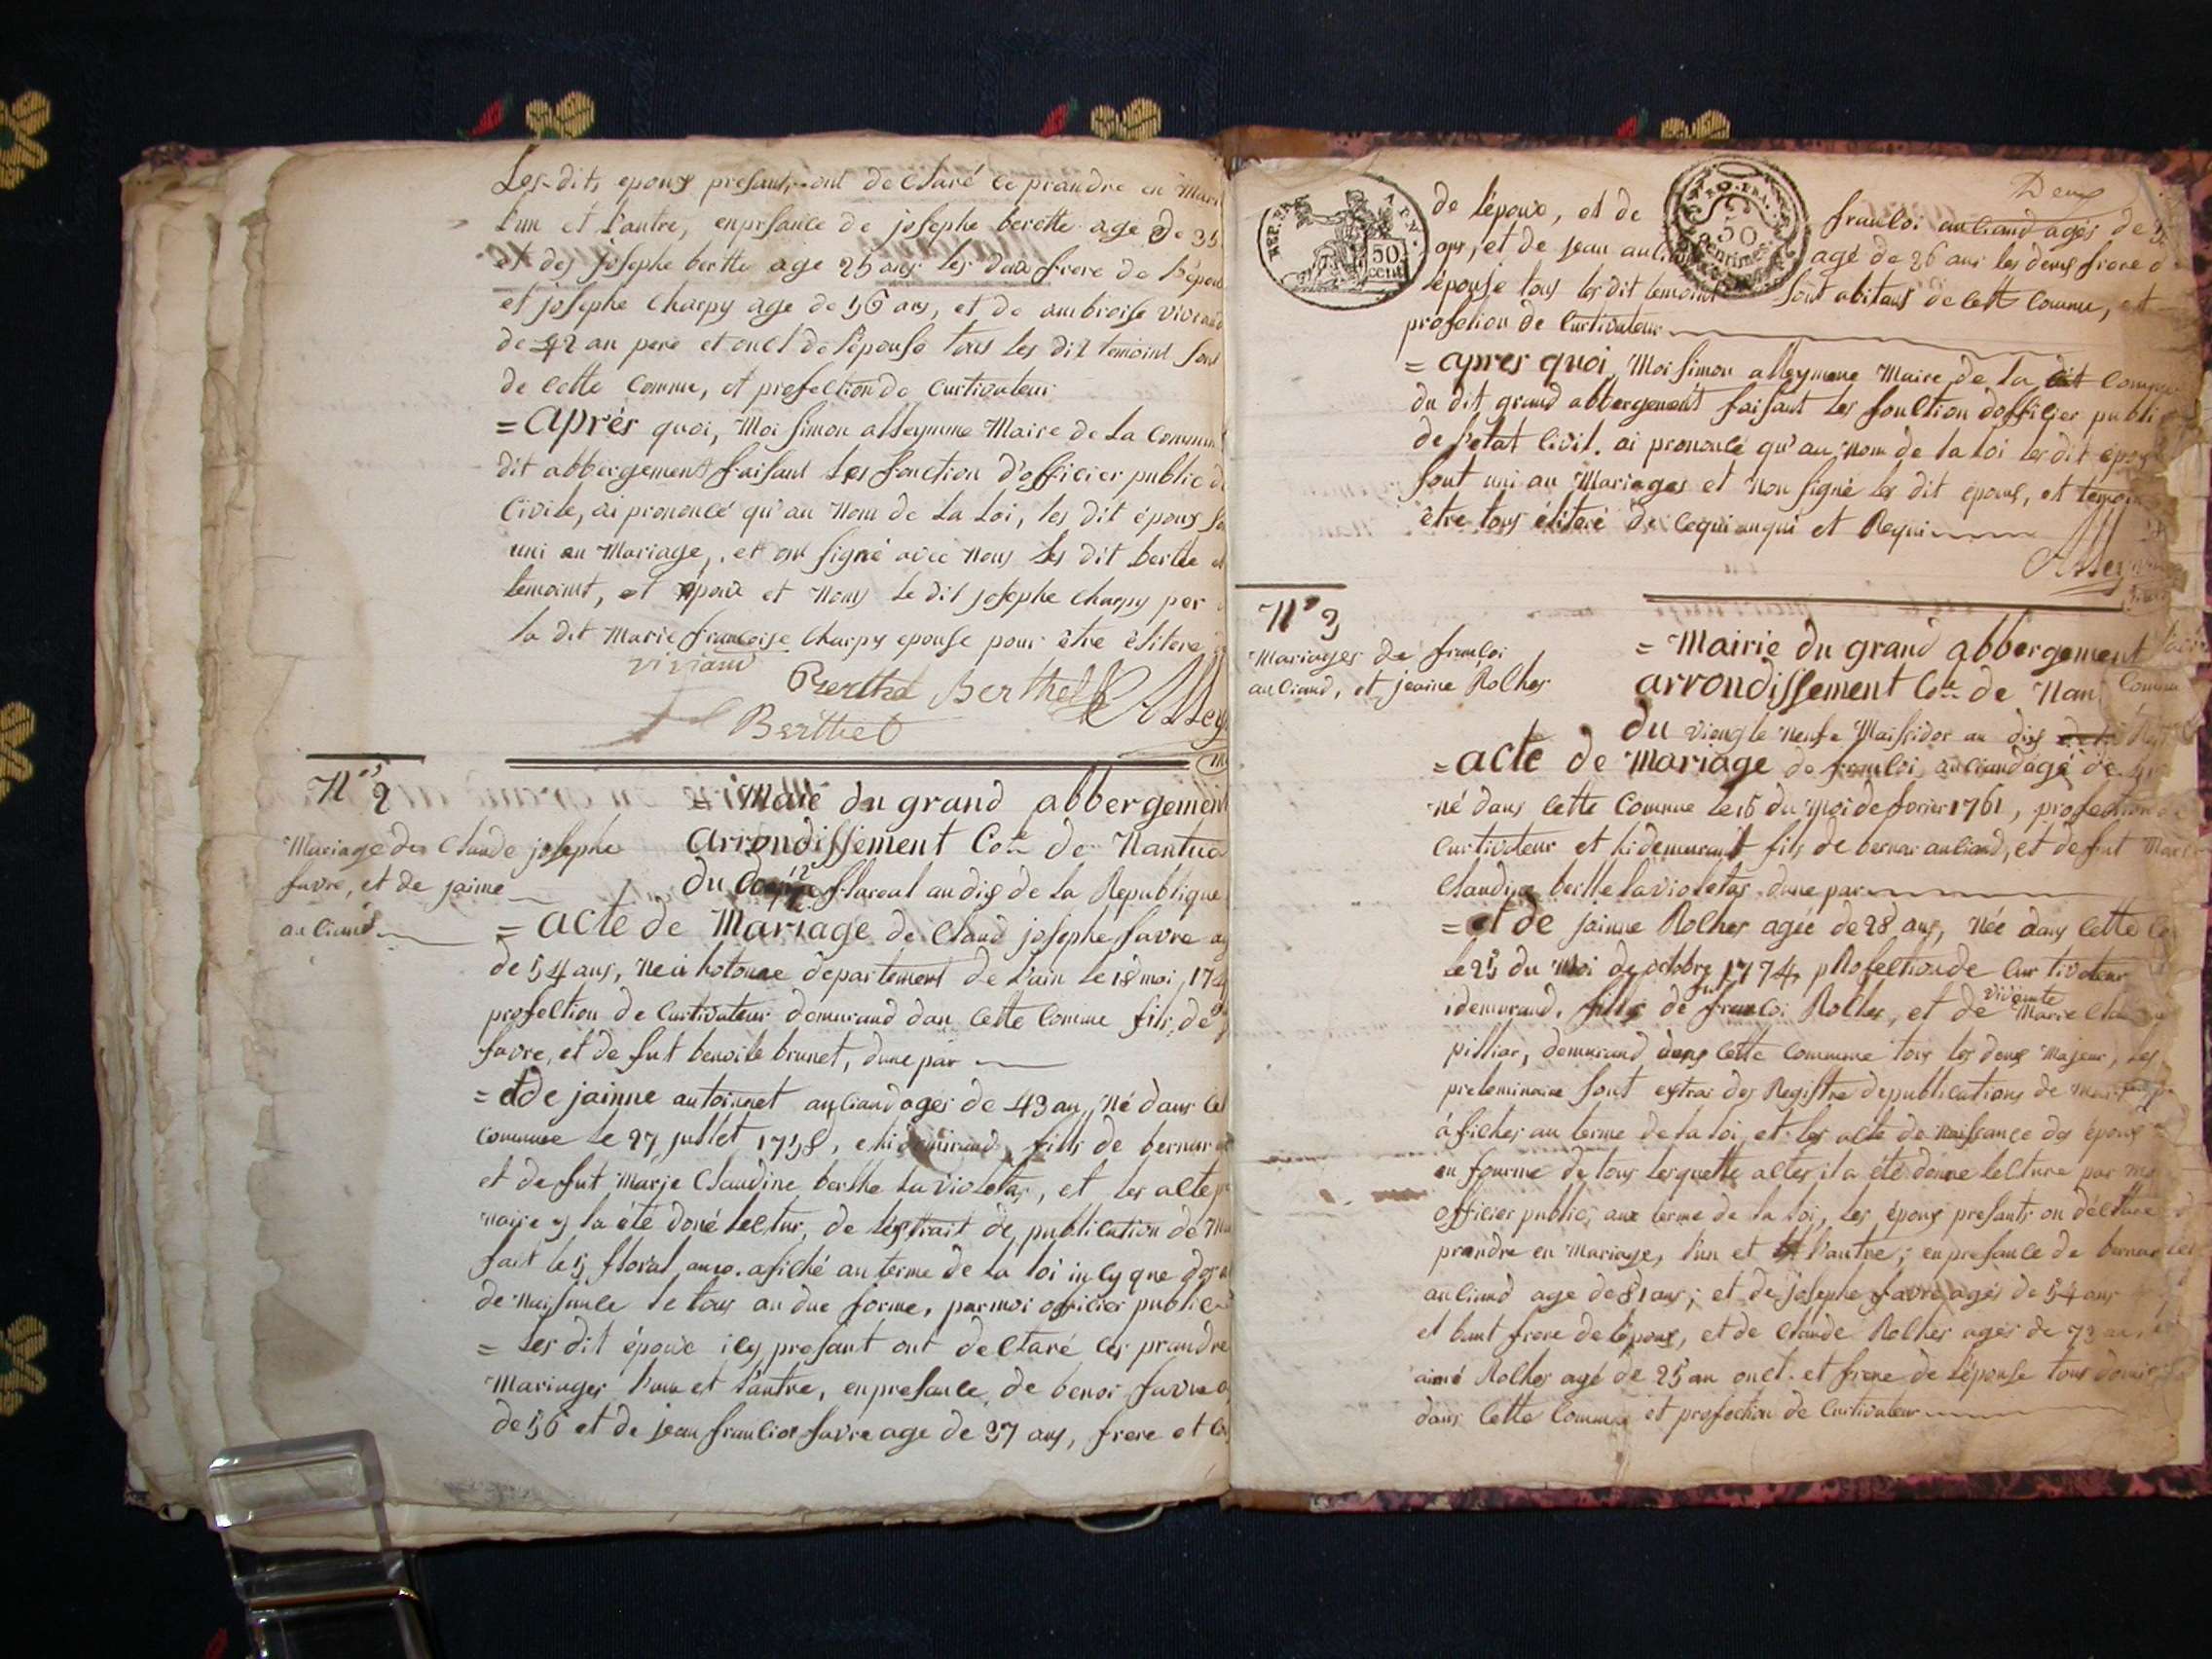 Les dits epoux presants ont declaré ce prandre en Mari
l'un et l'autre, en presance de josephe berthe age de 35
et des josephe berthe age 25 ans les deux frere de l'épou
et josephe Charpy age de 56 ans, et de ambroise viviand
de 42 an pere et oncl de l'épouse tous les dit temoint sont
de cette Commu, et profection de Curtivateur
= après quoi, Moi simon alleymme Maire de la Commun
dit abbergement faisant les fonction d'officier public de
Civile, ai prononcé qu'au Nom de la Loi, les dit époux so
uni en Mariage, et on signé avec nous les dit berthe et
temoint, et époux et Nous le dit josephe Charpy per
la dit Marie francoise Charpy epouse pour être élitere
viviand
Berthet Berthet Alley
Berthet
N° 2
Mariage des Claude josephe
favre, et de jaime
auliand
= Maie du grand abbergement
arrondissement Cote de Nantua
du 12 flareal an dix de la Republique
= acte de Mariage de Claud josephe favre ag
de 54 ans, Né à hotonne departement de l'ain le 18 mai 174
profection de Curtivateur demurand dan Cette Comme fils de
favre, et de fut benoite brunet, dune par
= et de jainne antoinnet auliand agés de 43 an, Né dans cet
commune le 27 jullet 1758, et hi demurand, fills de bernar
et de fut Marie Claudine berthe laviolette, et les acte
naire y la été doné lectur, de l'extrait de publication de Ma
fait le 5 floral an 10. afiché au terme de la loi incy que des a
de naissance le tous an due forme, par moi officier public
= Les dit époux icy presant ont declaré ces prandre
Mariages l'une et l'autre, en presance de benoi favre a
de 56 et de jean francios favre age de 37 ans, frere et
Deux
REP. FRA.
50 cent
de l'époux, et de francloi auliand agés de
ans, et de jean auliand agé de 26 ans les deux frere d
l'épouse tous les dit temoint sont abitans de cett Commu, et
profection de Curtivateur
= apres quoi, Moi simon alleymme Maire de la dit Commu
du dit grand abbergement faisant les fonction d'officier publi
de l'etat Civil. ai prononcé qu'au Nom de la loi les dit époux
sont uni au Mariages et Non signé les dit époux, et temoin
être tous éliteré de ce qui anqui et Requi
Alleymme
N° 3
Mariages de francloi
auliand, et jeanne Rolhes
= Mairie du grand abbergement
arrondissement Cote de Nan
du viengte neufe Maissidor an dix
= acte de Mariage de francloi auliand agé de
né dans cette Commue le 16 du Moi de fevrier 1761, profection de
Curtivateur et hi demurant fils de bernar auliand, et de fut Marie
Claudine berthe laviolettas dune par
= et de jainne Rolhes agée de 28 ans, Née dans cette Co
le 25 du Moi de octobre 1774, profection de Curtivateur
idemurand, fills de fut francloi Rolhes, et de vivante Marie Cla
pilliar, demurand dans cette Commune tous les deux Majeur, les
preleminaire sont extrai des Registre de publications de Mari
à fiches au terme de la loi, et les acte de naissance des époux
en fourme de tous lesquelle actes, il a été donne lecture par moi
officier public, aux terme de la loi, les époux presants on déclaré
prandre en Mariage, l'un et l'autre; en presance de bernar
auliand age de 81 ans; et de josephe favre agés de 54 ans
et baut frere de l'époux, et de Claude Rolhes agés de 73 an,
aimé Rolhes agé de 25 an oncl. et frere de l'épouse tous domi
dans cette Commue et profection de Curtivateur